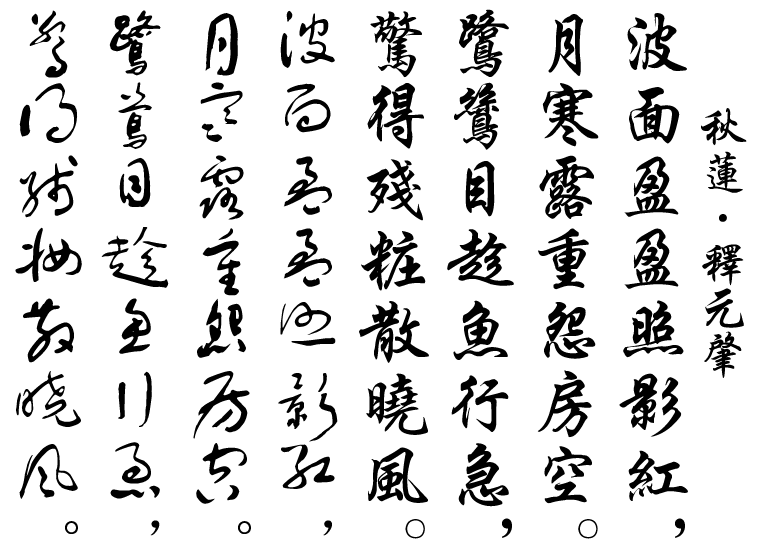 秋蓮·釋元肇
波面盈盈照影紅，
月寒露重怨房空。
鷺鷥目趁魚行急，
驚得殘粧散曉風。
波面盈盈照影紅，
月寒露重怨房空。
鷺鷥目趁魚行急，
驚得殘妝散曉風。